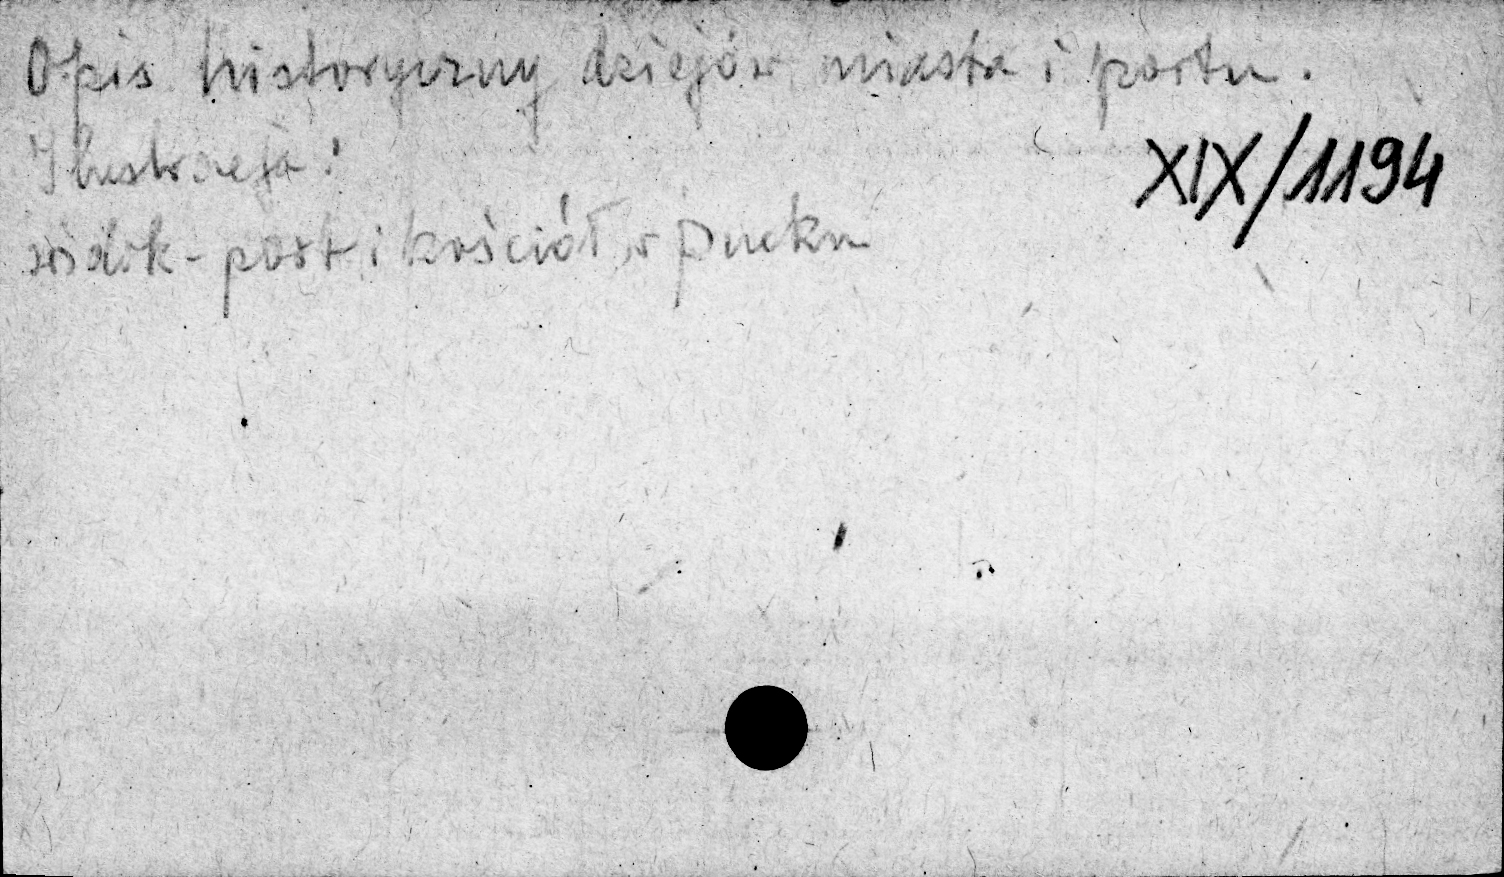 Opis historyczny dziejów miasta i portu.
Ilustracja:
XIX/1194
widok - port i kościół w Pucku